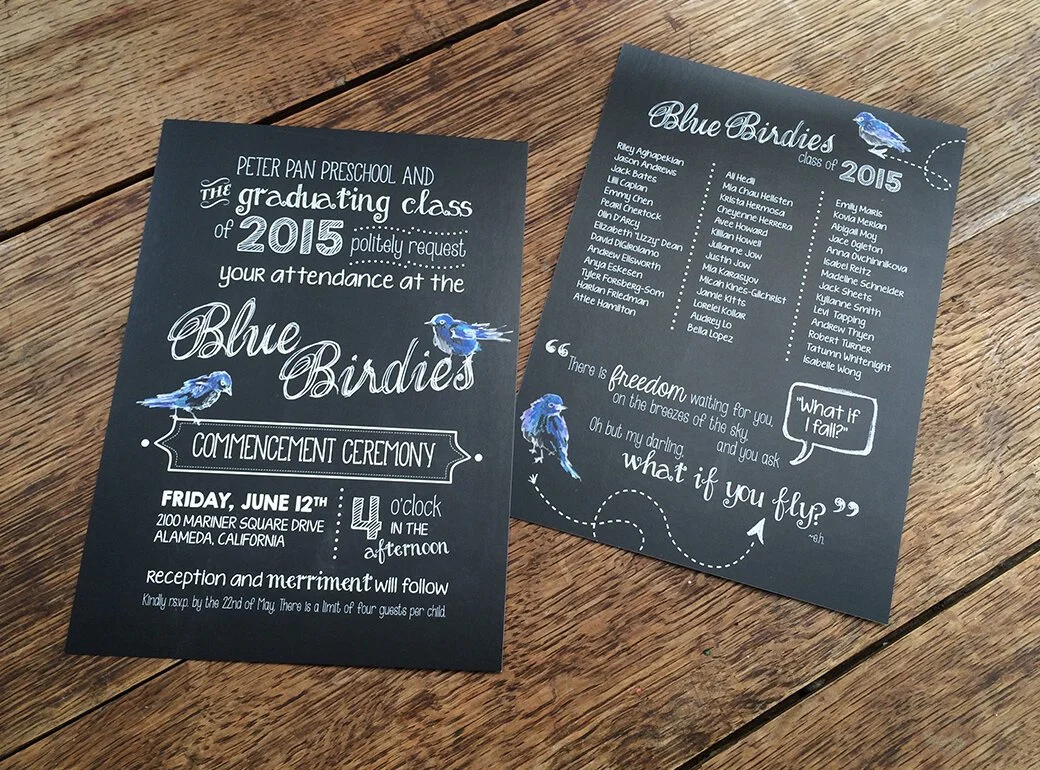 PETER PAN PRESCHOOL AND
THE graduating class
of 2015 politely request
your attendance at the
Blue
Birdies
COMMENCEMENT CEREMONY
FRIDAY, JUNE 12TH
2100 MARINER SQUARE DRIVE
ALAMEDA, CALIFORNIA
4 o'clock
IN THE
afternoon
reception and merriment will follow
Kindly r.s.v.p. by the 22nd of May. There is a limit of four guests per child.
Blue Birdies
class of 2015
Riley Aghapekian
Jason Andrews
Jack Bates
Lilli Caplan
Emmy Chen
Pearl Chertock
Olin D'Arcy
Elizabeth "Lizzy" Dean
David DiGirolamo
Andrew Ellsworth
Anya Eskesen
Tyler Forsberg-Som
Harlan Friedman
Atlee Hamilton
Ali Hedli
Mia Chau Hellsten
Krista Hermosa
Cheyenne Herrera
Avee Howard
Killian Howell
Julianne Jow
Justin Jow
Mia Karasyov
Micah Kines-Gilchrist
Jamie Kitts
Lorelei Kollar
Audrey Lo
Bella Lopez
Emily Maris
Kovia Merian
Abigail Moy
Jace Ogleton
Anna Ovchinnikova
Isabel Reitz
Madeline Schneider
Jack Sheets
Kylianne Smith
Levi Tapping
Andrew Thyen
Robert Turner
Tatumn Whitenight
Isabelle Wong
“There is freedom waiting for you,
on the breezes of the sky.
and you ask
"What if
I fall?"
Oh but my darling,
what if you fly?”
~e.h.